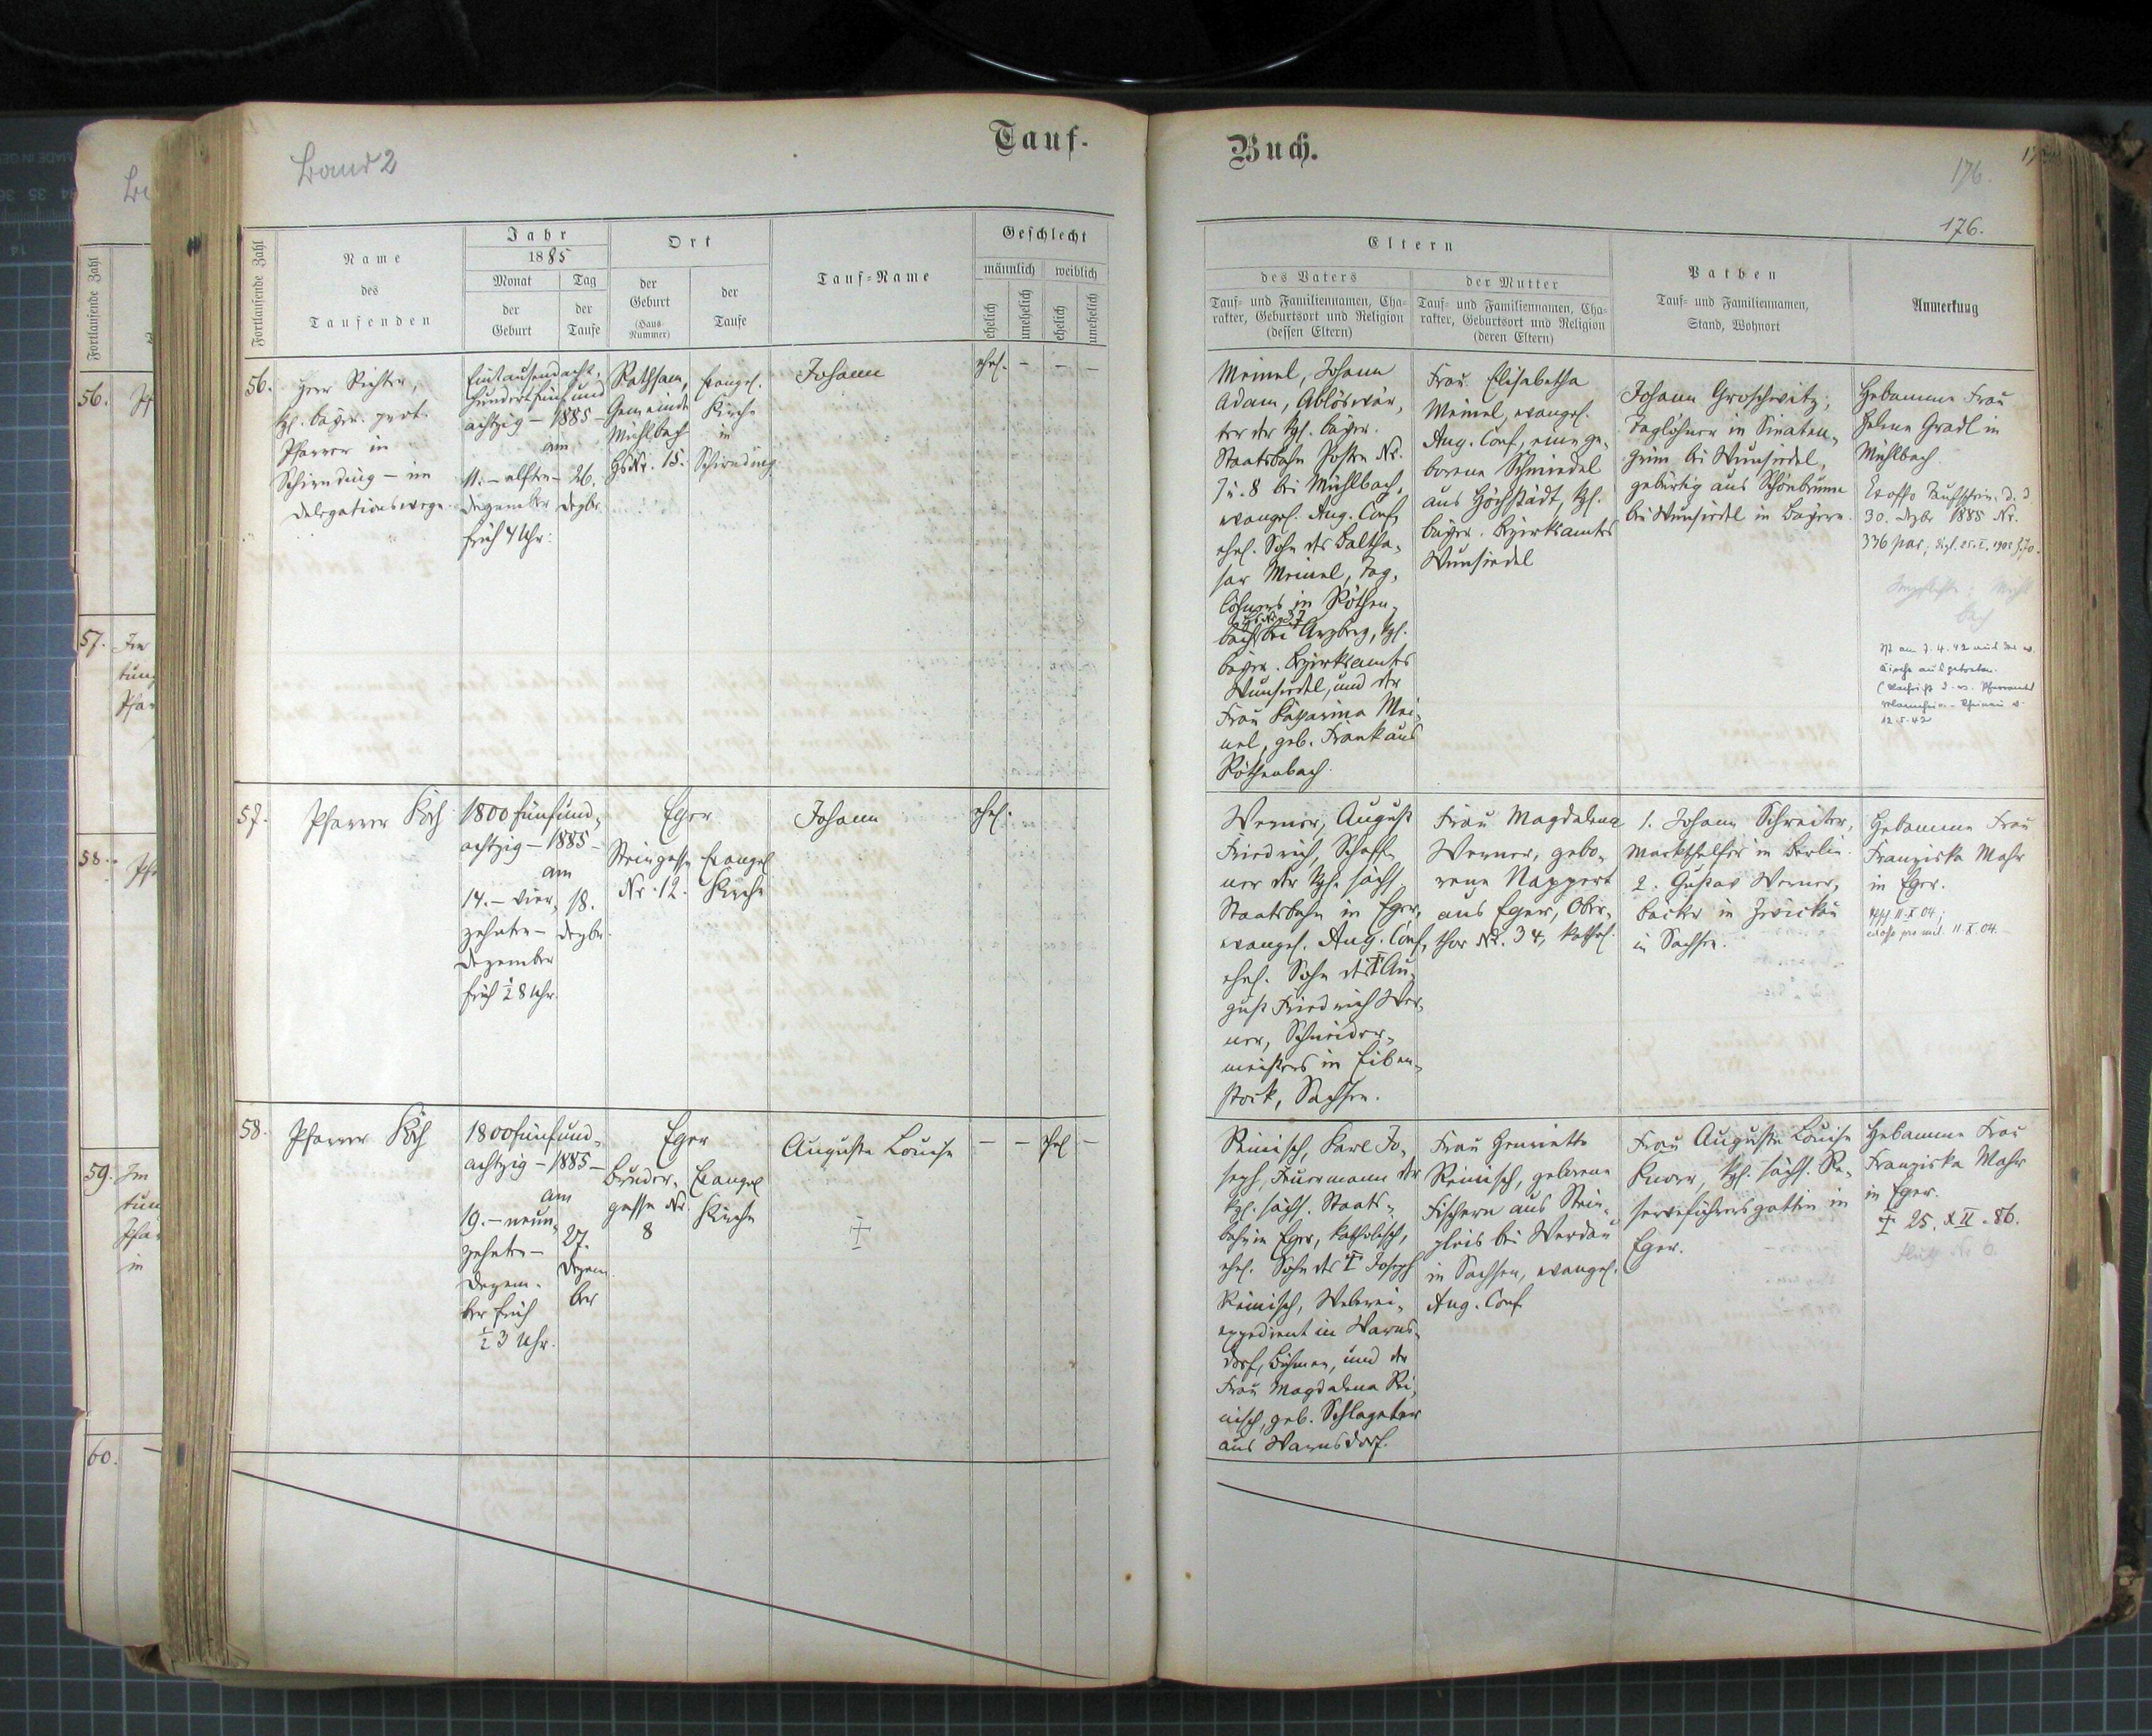 Band 2
Tauf-
Buch.
176.
176.
Fortlaufende Zahl
Name
des
Taufenden
Jahr
1885
Monat
der
Geburt
Tag
der
Taufe
Ort
der
Geburt
(Haus-
Nummer)
der
Taufe
Tauf-Name
Geschlecht
männlich
weiblich
ehelich
unehelich
ehelich
unehelich
Eltern
des Vaters
Tauf- und Familiennamen, Cha-
rakter, Geburtsort und Religion
(dessen Eltern)
der Mutter
Tauf- und Familiennamen, Cha-
rakter, Geburtsort und Religion
(deren Eltern)
Pathen
Tauf- und Familiennamen,
Stand, Wohnort
Anmerkung
56.
Herr Richter,
kgl. bayr. prot.
Pfarrer in
Schirnding – im
Delegationswege.
Eintausendacht-
hundertfünfund
achtzig – 1885 –
am
11. – elften –
Dezember
früh 4 Uhr.
26.
Dezbr.
Rathsam,
Gemeinde
Mühlbach
HsNr. 15.
Evangel.
Kirche
in
Schirnding
Johann
ehel. – – –
Meinel, Johann
Adam, Ablöswär-
ter der kgl. bayr.
Staatsbahn Posten Nr.
7 u. 8 bei Mühlbach,
evangel. Aug. Conf,
ehel. Sohn des Baltha-
sar Meinel, Tag-
löhners in Röthen-
bach bei Arzberg, kgl.
bayer. Bezirksamtes
Wunsiedel, und der
Frau Katharina Mei-
nel, geb. Frank aus
Röthenbach.
Frau Elisabetha
Meinel, evangel.
Aug. Conf, eine ge-
borene Schmiedel
aus Höchstädt, kgl.
bayer. Bezirksamtes
Wunsiedel
Johann Groschwitz,
Taglöhner in Sinaten-
grün bei Wunsiedel,
gebürtig aus Schönbrunn
bei Wunsiedel in Bayern.
Hebamme Frau
Helene Gradl in
Mühlbach.
Exoffo Taufschein d. d.
30. Dezbr 1885 Nr.
336 par;
Ist am 7.4.42 aus der ev.
Kirche ausgetreten.
(Nachricht d. ev. Pfarramtes
Mannheim-Rheinau v.
12.5.42
57.
Pfarrer Koch
1800 fünfund-
achtzig – 1885 –
am
14. – vier-
zehnten –
Dezember
früh ½ 8 Uhr.
18.
Dezbr.
Eger
Steingasse
Nr. 12.
Evangel
Kirche
Johann
ehel.
Werner, August
Friedrich, Schaff-
ner der kgl. sächs.
Staatsbahn in Eger,
evangel. Aug. Conf,
ehel. Sohn des † Au-
gust Friedrich Wer-
ner, Schneider-
meisters in Eiben-
stock, Sachsen.
Frau Magdalena
Werner, gebo-
rene Nappert
aus Eger, Ober-
thor Nr. 34, kathol.
1. Johann Schreiter,
Markthelfer in Berlin.
2. Gustav Werner,
Bäcker in Zwickau
in Sachsen.
Hebamme Frau
Franziska Mohr
in Eger.
11.X.04.
58.
Pfarrer Koch
1800 fünfund-
achtzig – 1885 –
am
19. – neun-
zehnten –
Dezem-
ber früh
½ 3 Uhr.
27.
Dezem-
ber
Eger
Bruder-
gasse Nr.
8
Evangel
Kirche
Auguste Louise
†
– – ehel –
Reinisch, Karl Jo-
seph, Feuermann der
kgl. sächs. Staats-
bahn in Eger, katholisch,
ehel. Sohn des † Joseph
Reinisch, Weberei-
expedient in Warns-
dorf, Böhmen, und der
Frau Magdalena Rei-
nisch, geb. Schlageter
aus Warnsdorf.
Frau Henriette
Reinisch, geborene
Fischern aus Stein-
pleis bei Werdau
in Sachsen, evangel.
Aug. Conf
Frau Auguste Louise
Knorr, kgl. sächs. Re-
serveführersgattin in
Eger.
Hebamme Frau
Franziska Mohr
in Eger.
† 25. XII. 86.
56.
57.
58.
59.
60.